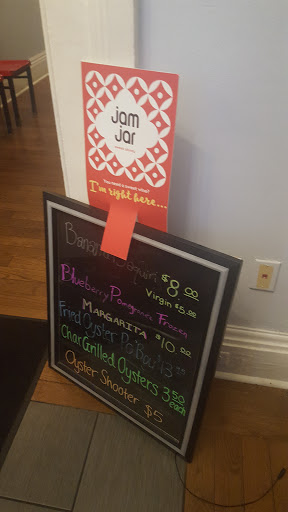 jam
jar
You need a sweet wine?
I'm right here...
Banana Daquiri $8.00
Virgin $5.00
Blueberry Pomegranate Frozen
MARGARITA $10.00
Fried Oyster Po'Boy
Char Grilled Oysters 3.50
each
Oyster Shooter $5